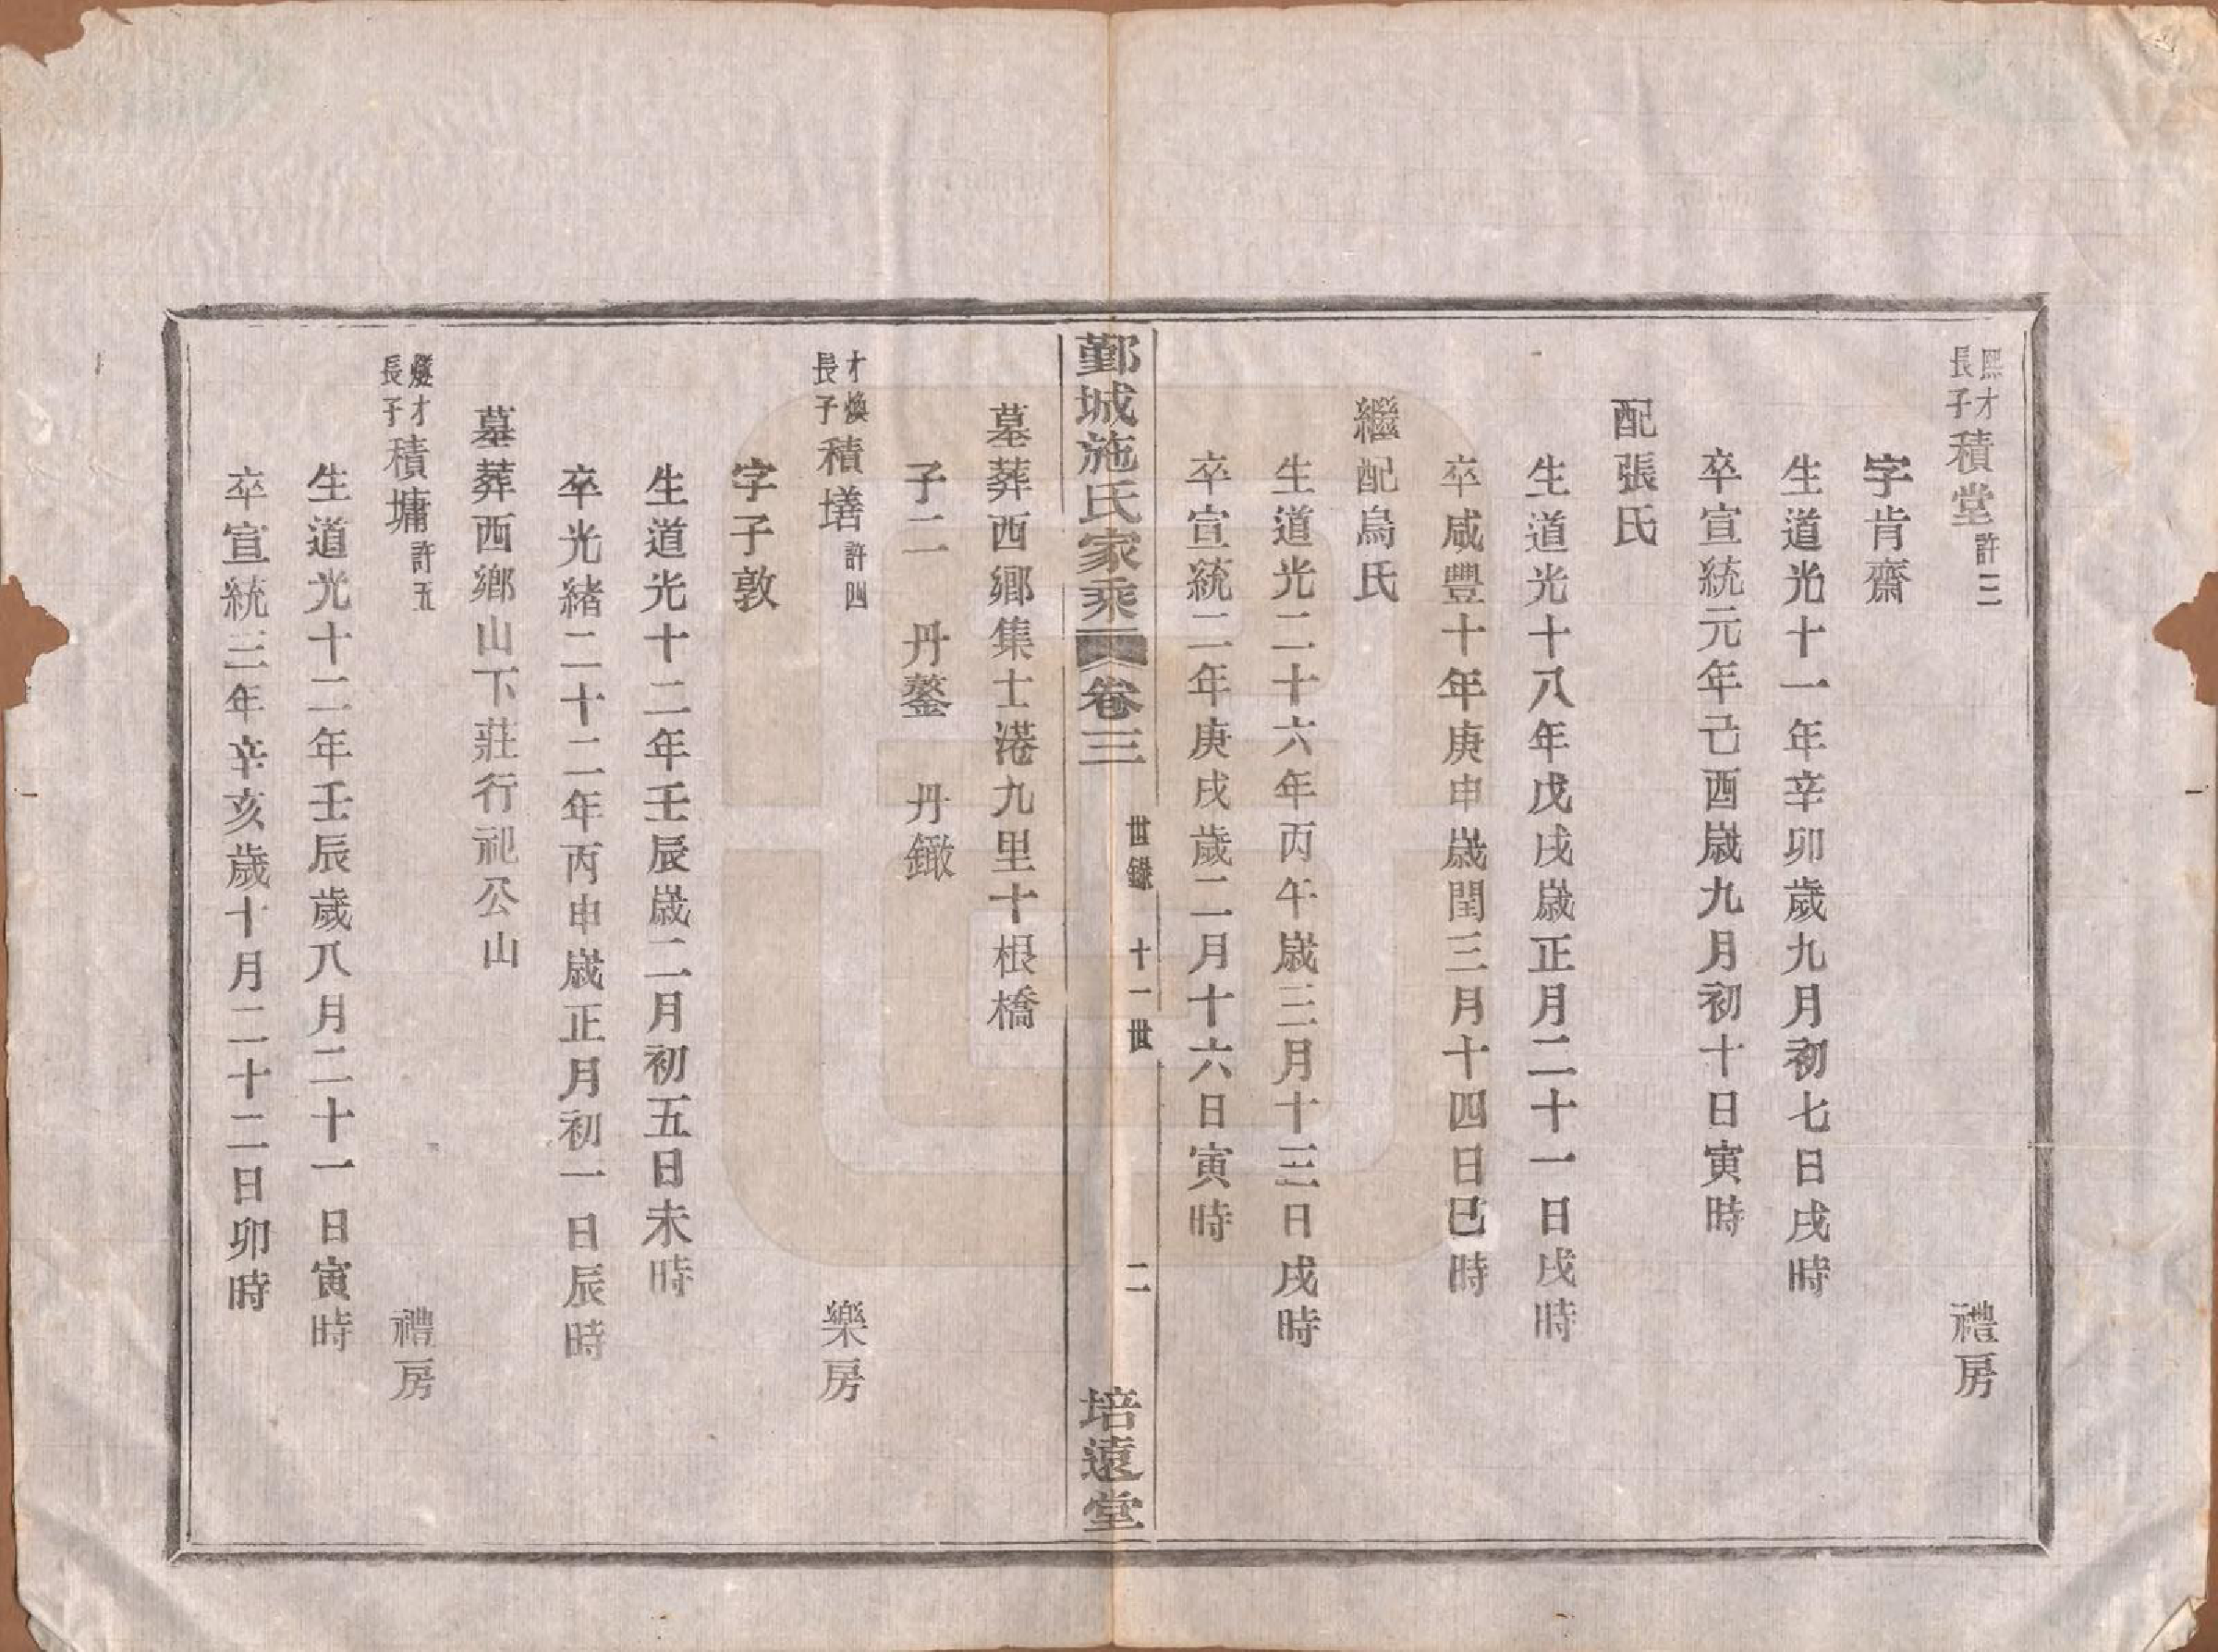 熙才長子積堂許三 禮房
字肯齋
生道光十一年辛卯歲九月初七日戌時
卒宣統元年己酉歲九月初十日寅時
配張氏
生道光十八年戊戌歲正月二十一日戌時
卒咸豐十年庚申歲閏三月十四日巳時
繼配烏氏
生道光二十六年丙午歲三月十三日戌時
卒宣統二年庚戌歲二月十六日寅時
鄞城施氏家乘 卷三 世錄 十一世 二 培遠堂
墓葬西鄉集士港九里十根橋
子二 丹鏊 丹鏾
才煥長子積墡許四 樂房
字子敦
生道光十二年壬辰歲二月初五日未時
卒光緒二十二年丙申歲正月初一日辰時
墓葬西鄉山下莊行祀公山
才長子積墉許五 禮房
生道光十二年壬辰歲八月二十一日寅時
卒宣統三年辛亥歲十月二十二日卯時